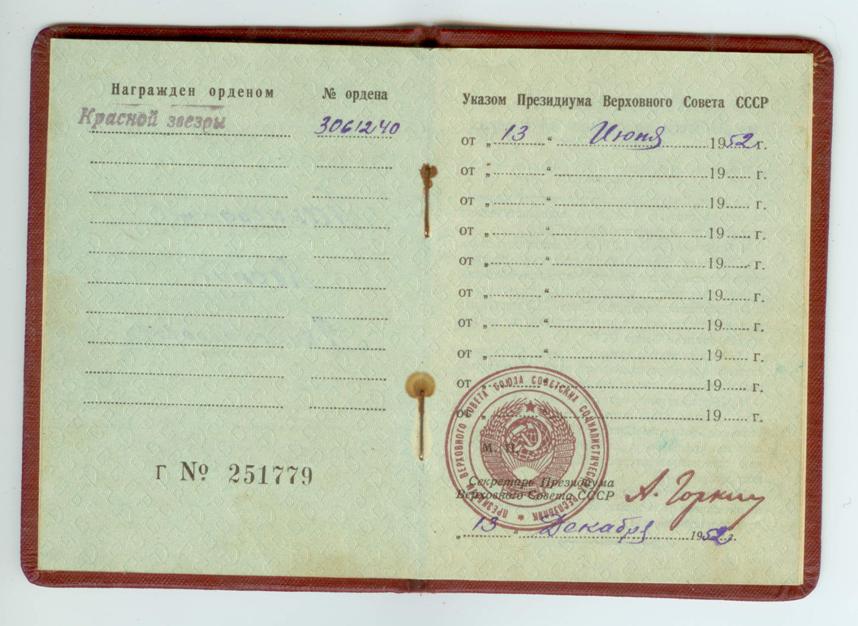 Награжден орденом
Красной звезры
№ ордена
3061240
г № 251779
Указом Президиума Верховного Совета СССР
от „ 13 “ Июня 1952 г.
от „ “ 19 г.
от „ “ 19 г.
от „ “ 19 г.
от „ “ 19 г.
от „ “ 19 г.
от „ “ 19 г.
от „ “ 19 г.
от „ “ 19 г.
от „ “ 19 г.
ПРЕЗИДИУМ ВЕРХОВНОГО СОВЕТА СОЮЗА СОВЕТСКИХ СОЦИАЛИСТИЧЕСКИХ РЕСПУБЛИК
М. П.
Секретарь Президиума
Верховного Совета СССР
А. Горкин
„ 13 “ Декабря 1952 г.